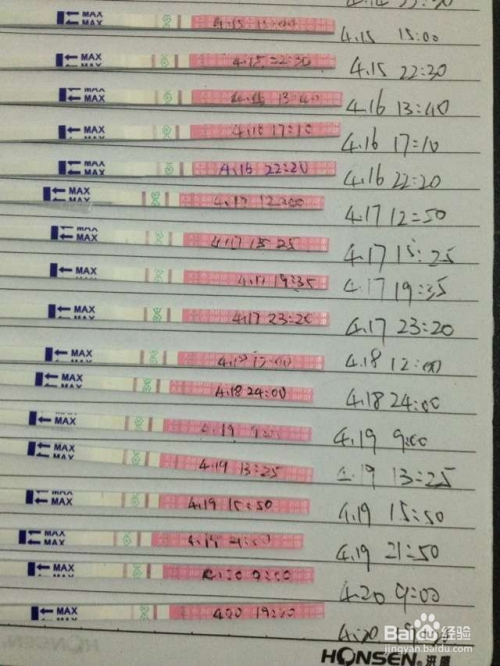 MAX
MAX 4.15 15:00 4.15 15:00
MAX
MAX 4.15 22:30 4.15 22:30
MAX
MAX 4.16 13:40 4.16 13:40
MAX
MAX 4.16 17:10 4.16 17:10
MAX
MAX 4.16 22:20 4.16 22:20
MAX
MAX 4.17 12:50
MAX
MAX 4.17 15:25 4.17 15:25
MAX
MAX 4.17 19:35 4.17 19:35
MAX
MAX 4.17 23:20 4.17 23:20
MAX
MAX 4.18 12:00
MAX
MAX 4.18 24:00 4.18 24:00
MAX
MAX 4.19 9:00
MAX
MAX 4.19 13:25 4.19 13:25
MAX
MAX 4.19 15:50 4.19 15:50
MAX
MAX 4.19 21:50
MAX
MAX 4.20 9:00
MAX
MAX 4.20 19:30 4.20
HONSEN
HONSEN
Baidu经验
jingyan.baidu.com